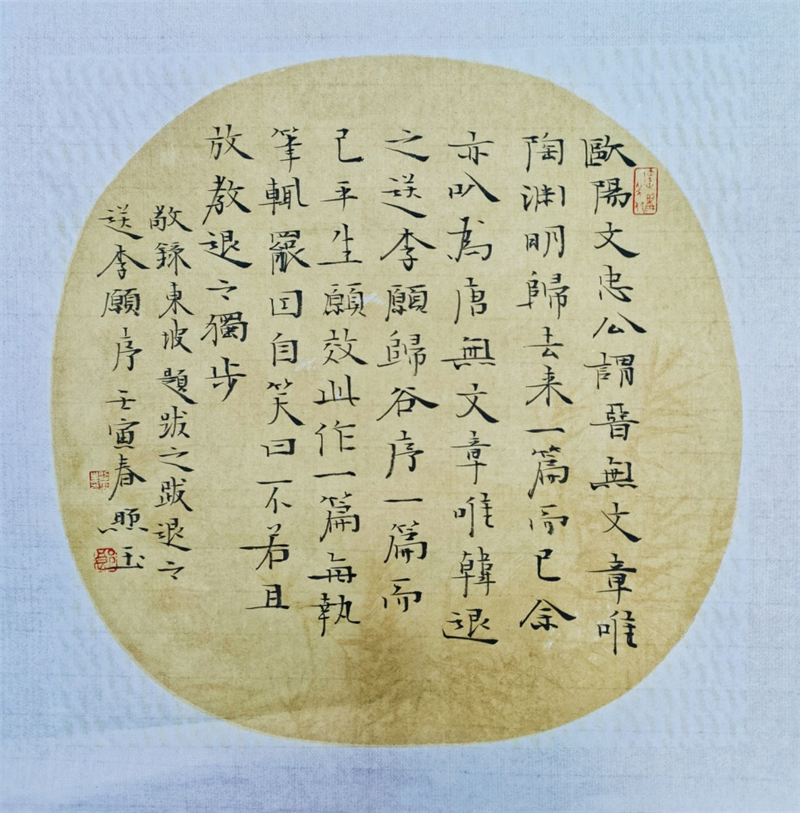 歐陽文忠公謂晉無文章唯
陶渊明歸去来一篇而已余
亦以為唐無文章唯韓退
之送李願歸谷序一篇而
已平生願效此作一篇每執
筆輒罷因自笑曰不若且
放教退之獨步
敬録東坡題跋之跋退之
送李願序壬寅春照玉